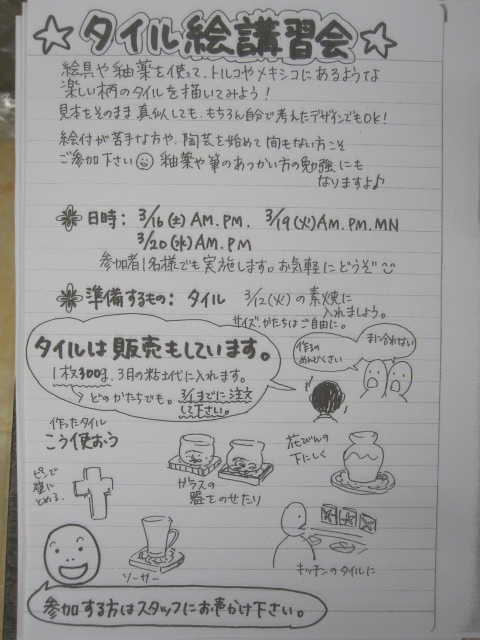 ☆タイル絵講習会☆
絵具や釉薬を使って、トルコやメキシコにあるような
楽しい柄のタイルを描いてみよう！
見本をそのまま真似しても、もちろん自分で考えたデザインでもOK！
絵付が苦手な方や、陶芸を始めて間もない方こそ
ご参加下さい 釉薬や筆のあつかい方の勉強にも
なりますよ♪
日時： 3/16(土)AM.PM. 3/19(火)AM.PM.MN
3/20(水)AM.PM
参加者1名様でも実施します。お気軽にどうぞ
準備するもの： タイル 3/12(火)の素焼に
入れましょう。
サイズ、かたちはご自由に。
タイルは販売もしています。
1枚300g、3月の粘土代に入れます。
→どのかたちでも。3/1までに注文
して下さい。
作るの
めんどくさい
まに合わない
作ったタイル
こう使おう
ピンで
壁に
とめる。
ガラスの
器をのせたり
花びんの
下にしく
ソーサー
キッチンのタイルに
参加する方はスタッフにお声かけ下さい。